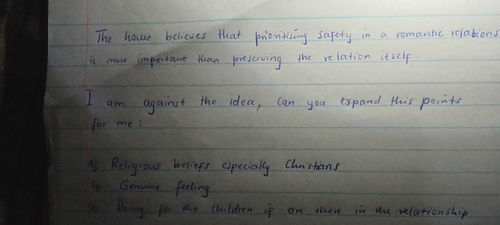 The house believes that prioritising safety in a romantic relations
is more important than preserving the relation itself.
I am against the idea, Can you expand this points
for me:
a) Religious beliefs especially Christians
b) Genuine feeling
c) Doing for the children if are there in the relationship